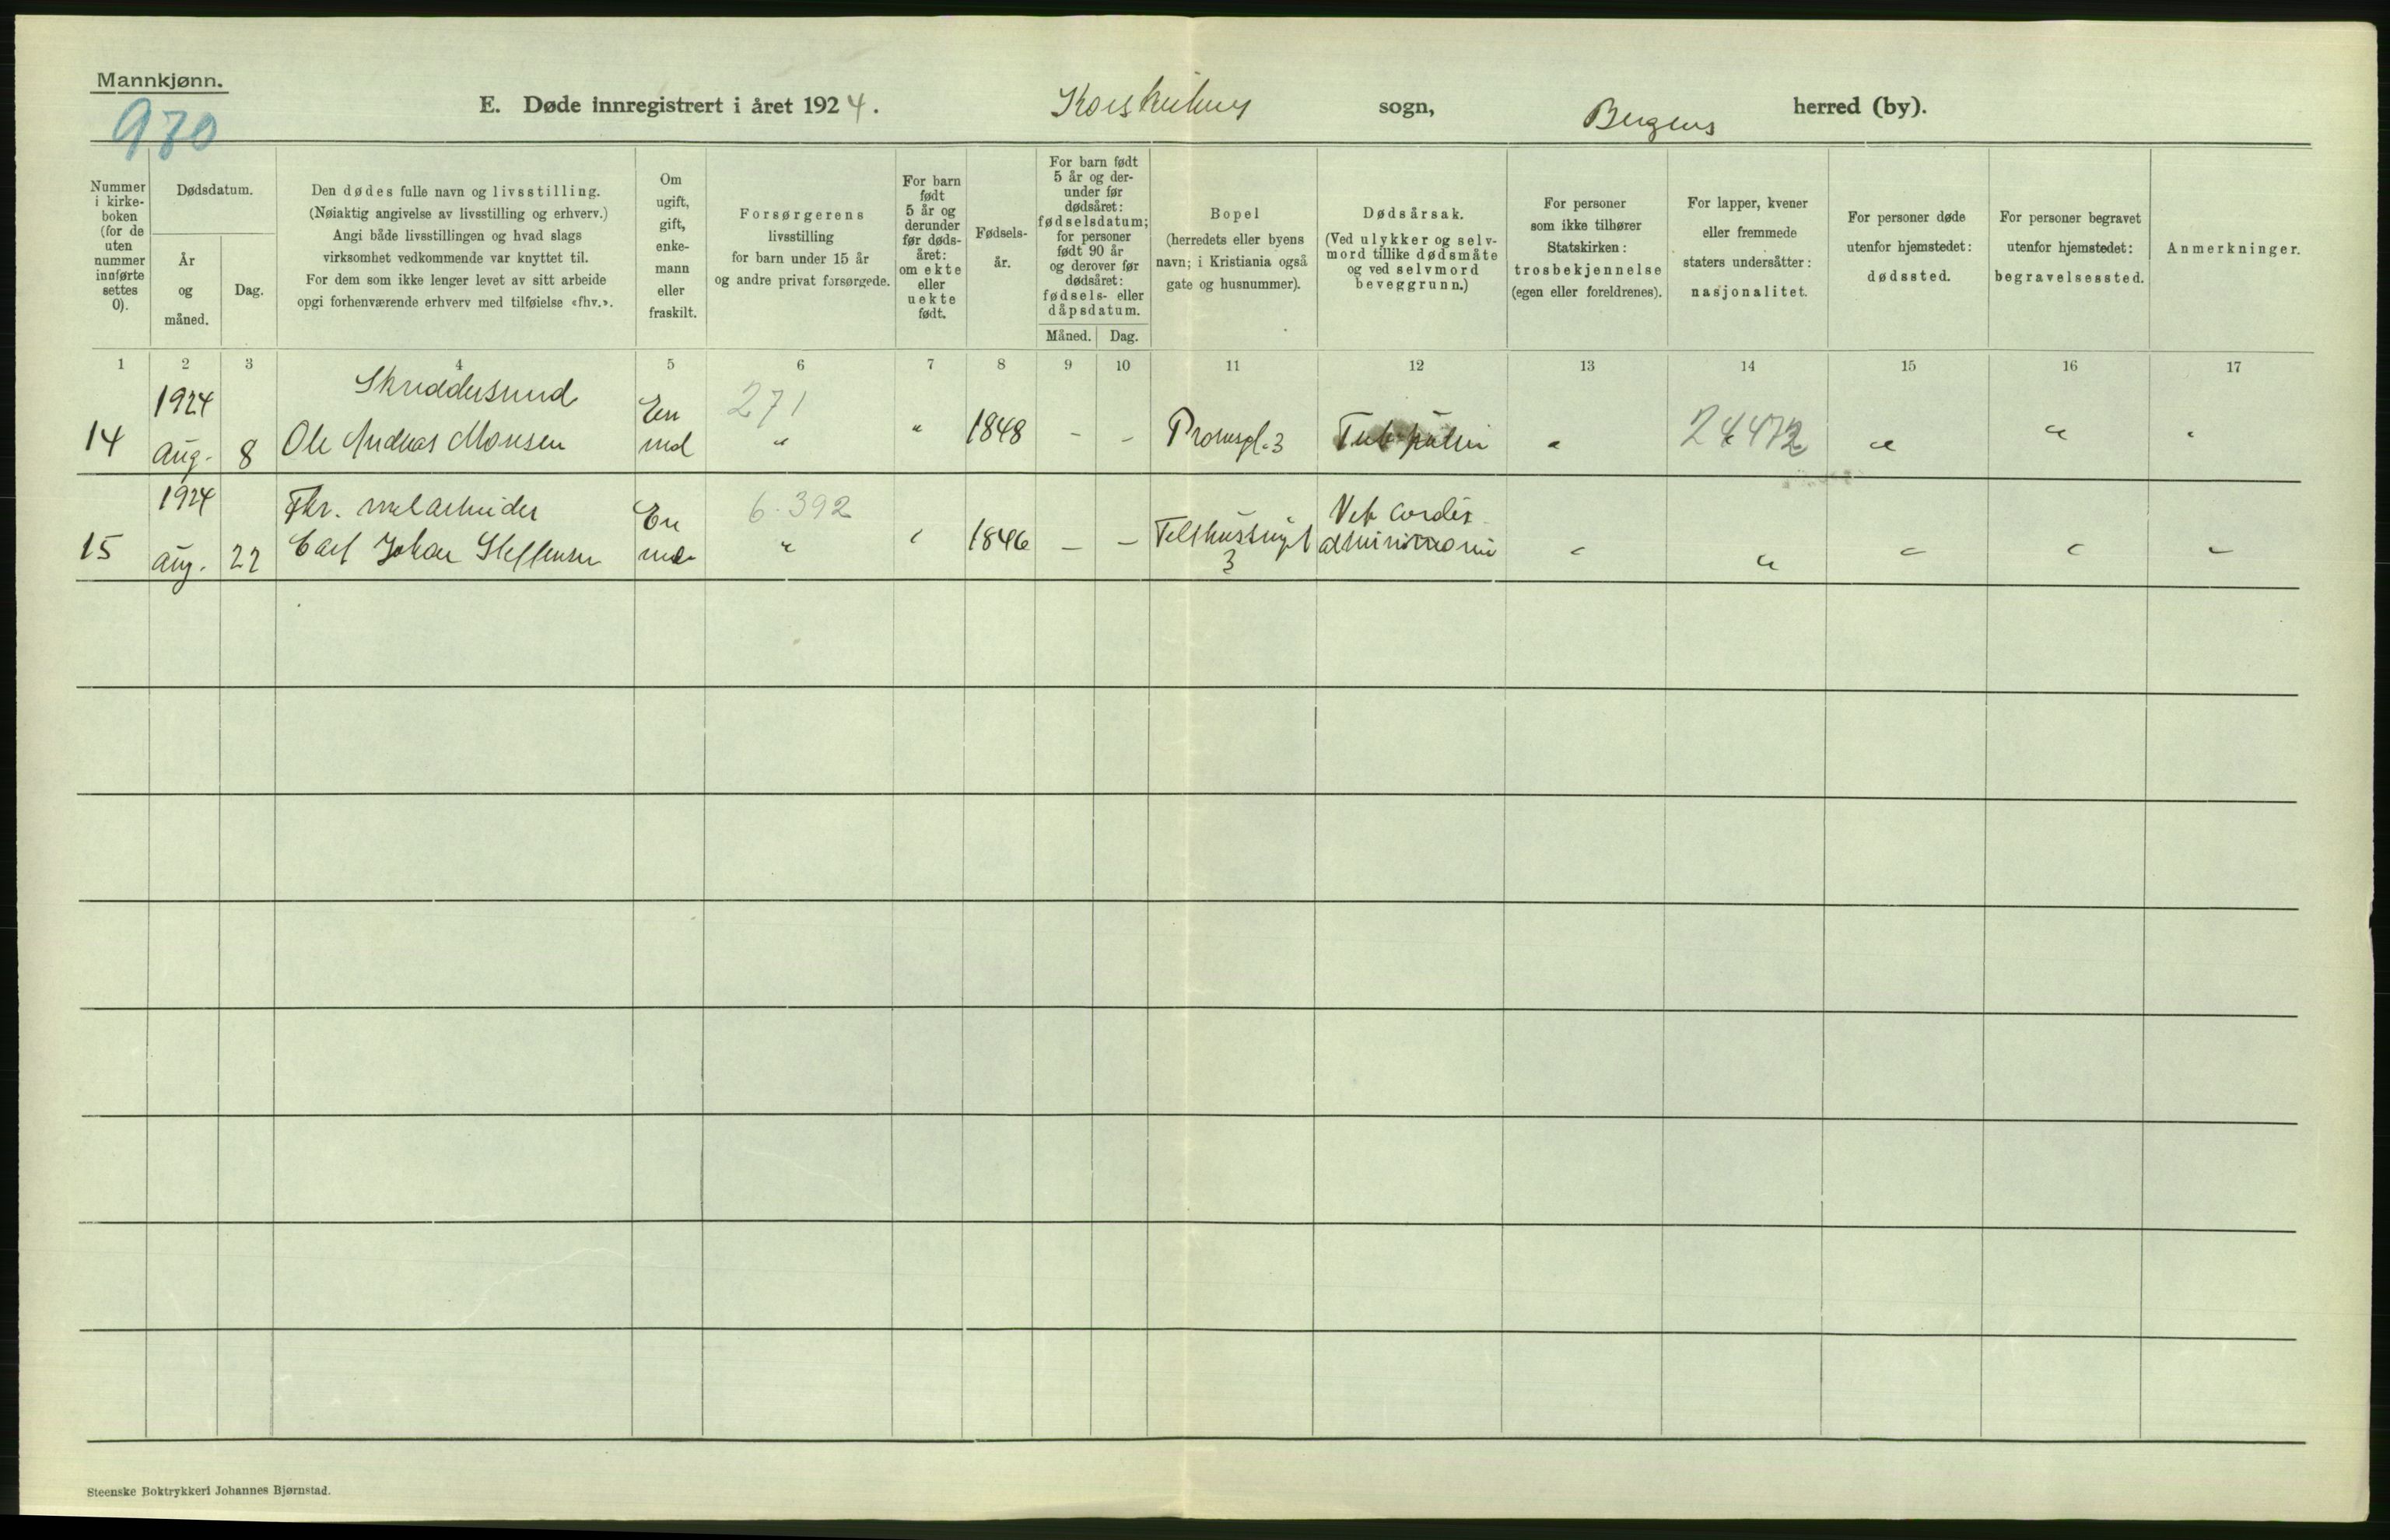 Mannkjønn.
970
E. Døde innregistrert i året 1924. Korskirkens sogn, Bergens herred (by).
Nummer i kirke-boken (for de uten nummer innførte settes 0).
Dødsdatum.
År og måned.
Dag.
Den dødes fulle navn og livsstilling.
(Nøiaktig angivelse av livsstilling og erhverv.)
Angi både livsstillingen og hvad slags
virksomhet vedkommende var knyttet til.
For dem som ikke lenger levet av sitt arbeide
opgi forhenværende erhverv med tilføielse «fhv.».
Om ugift, gift, enke-mann eller fraskilt.
Forsørgerens
livsstilling
for barn under 15 år
og andre privat forsørgede.
For barn født 5 år og derunder før døds-året: om ekte eller uekte født.
Fødsels-år.
For barn født 5 år og der-under før dødsåret: fødselsdatum; for personer født 90 år og derover før dødsåret: fødsels- eller dåpsdatum.
Måned. Dag.
Bopel
(herredets eller byens
navn; i Kristiania også
gate og husnummer).
Dødsårsak.
(Ved ulykker og selv-
mord tillike dødsmåte
og ved selvmord
beveggrunn.)
For personer
som ikke tilhører
Statskirken:
trosbekjennelse
(egen eller foreldrenes).
For lapper, kvener
eller fremmede
staters undersåtter:
nasjonalitet.
For personer døde
utenfor hjemstedet:
dødssted.
For personer begravet
utenfor hjemstedet:
begravelsessted.
Anmerkninger.
1 2 3 4 5 6 7 8 9 10 11 12 13 14 15 16 17
1924 Skreddersvend En 271
14 Aug. 8 Ole Andreas Monsen md " " 1848 - - 3 " " " " "
1924 Fhv. En 6.392 Vit. cordis
15 Aug. 22 Carl Johan Steffensen md " " 1846 - - " " " " "
3
Steenske Boktrykkeri Johannes Bjørnstad.